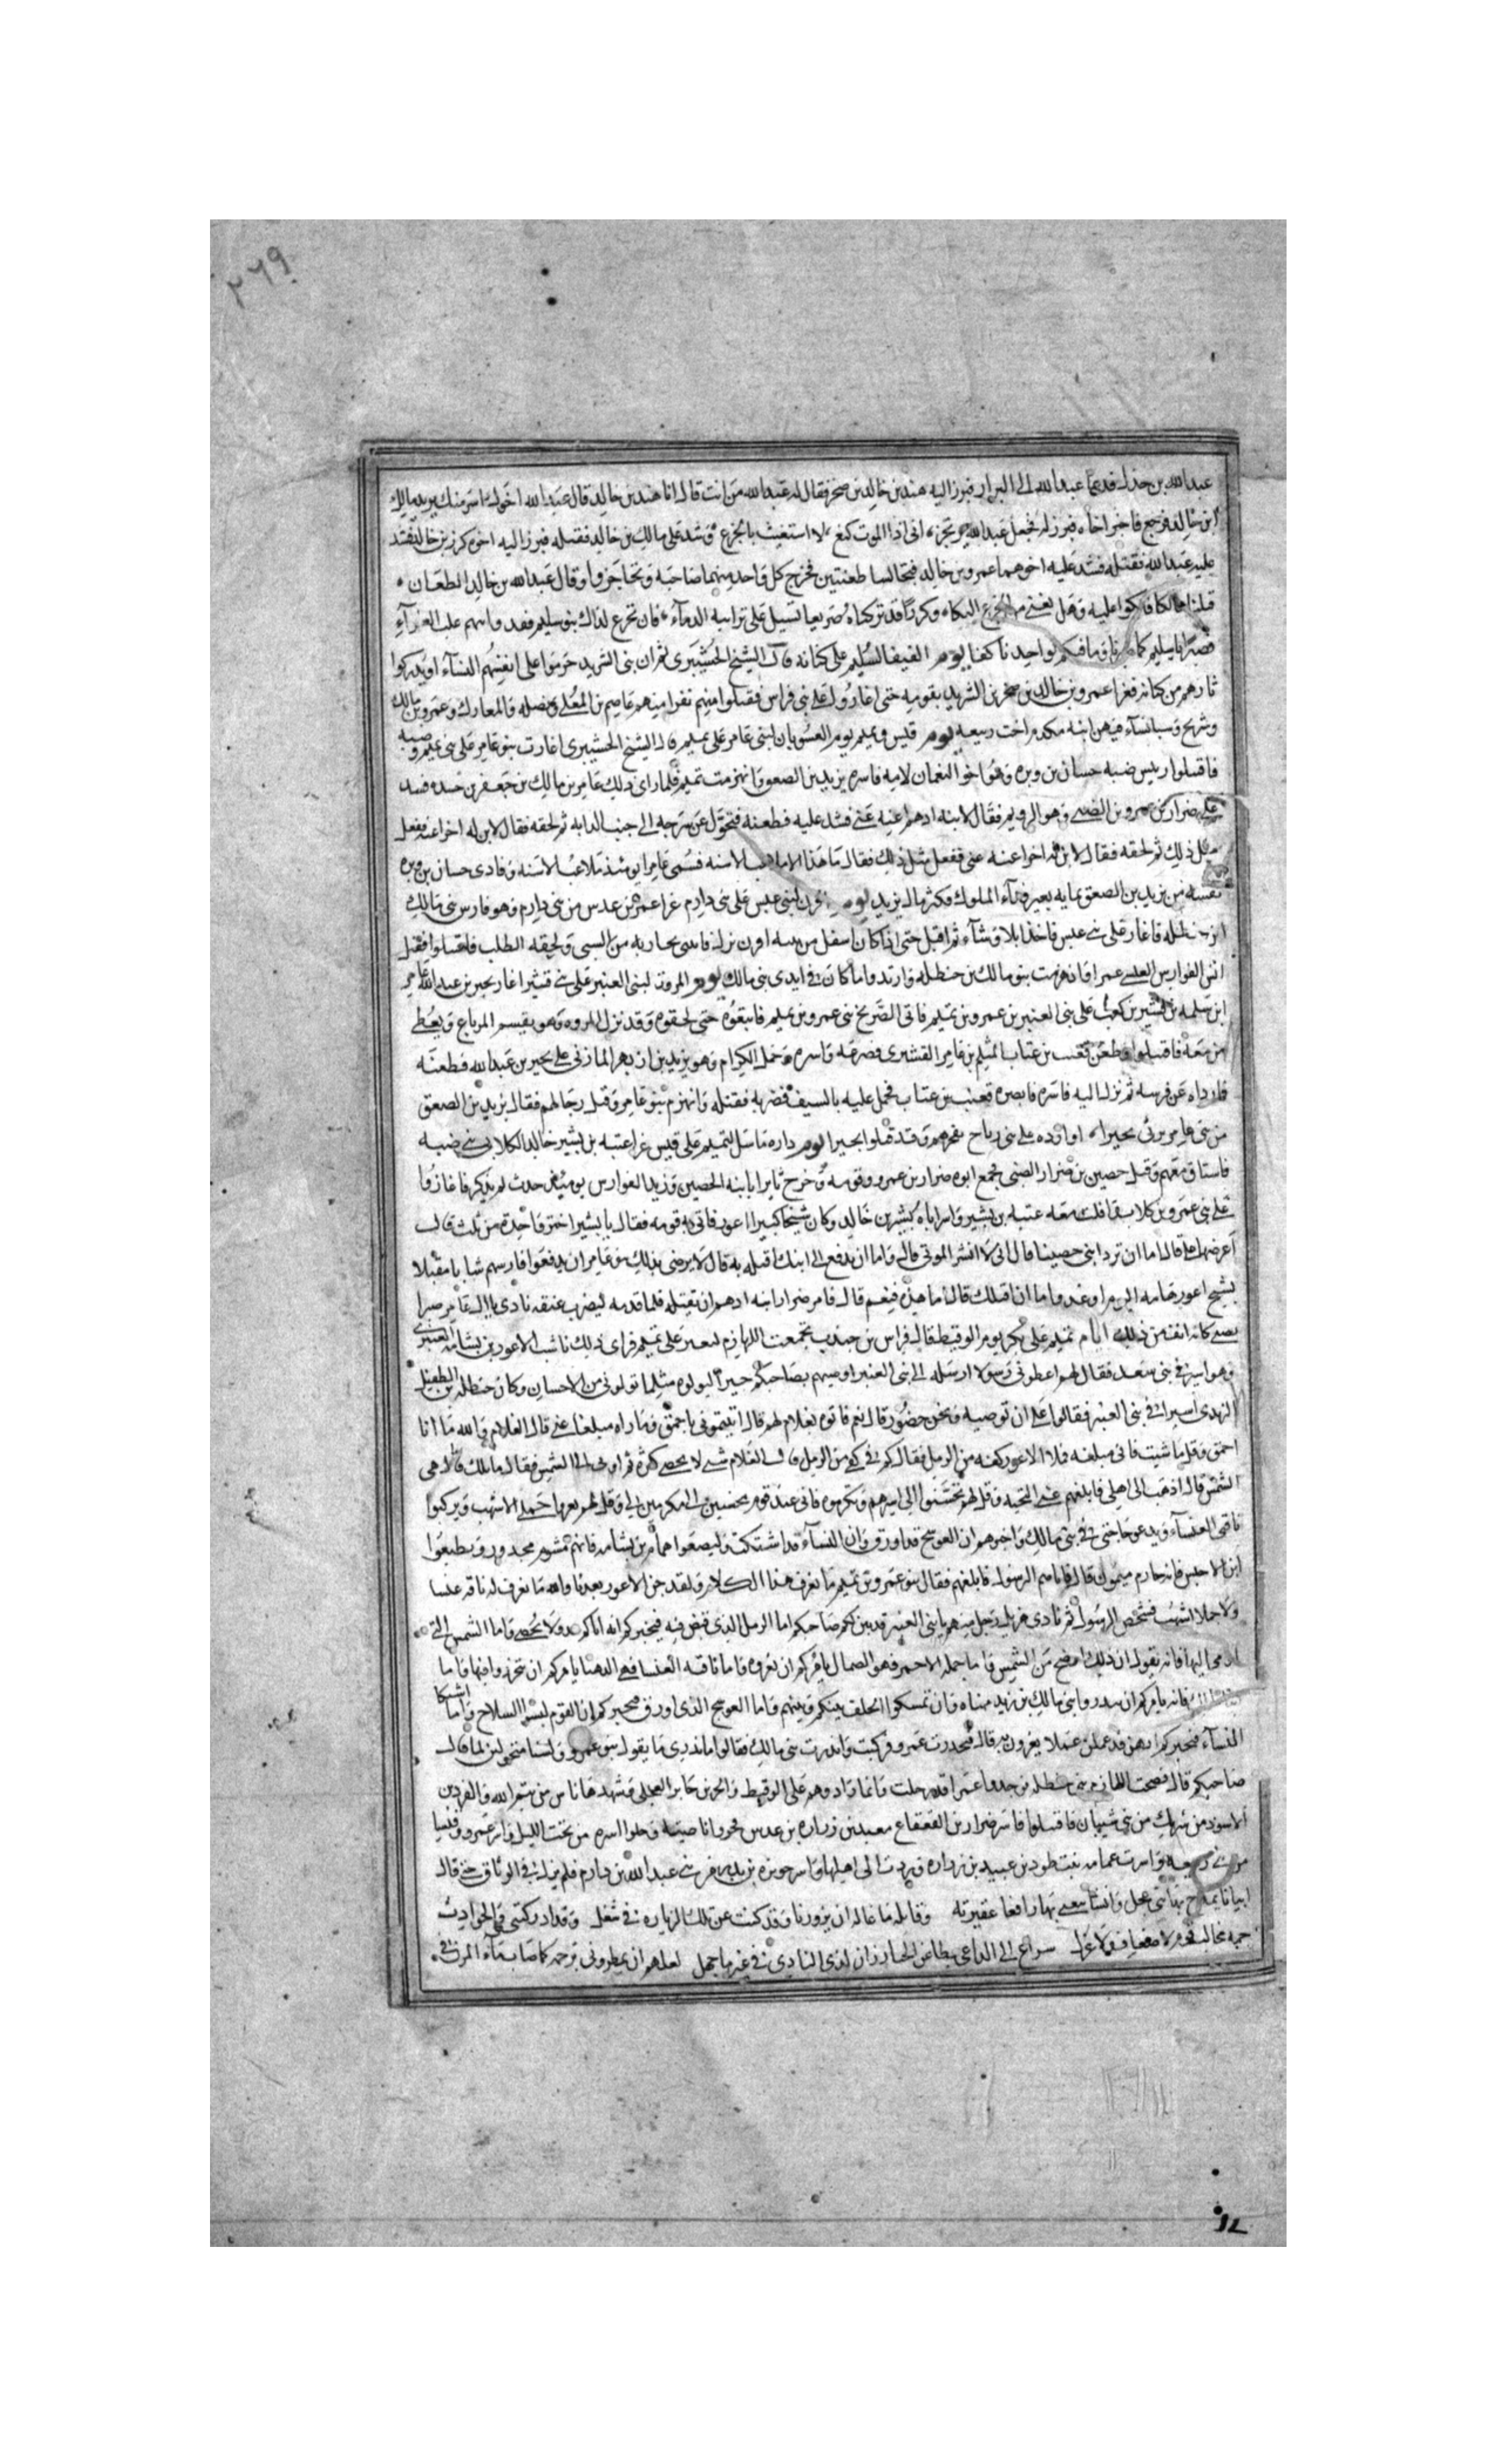 ٢٦٩
عبد الله بن جذل فدعا عبد الله الى البراز فبرز اليه هند بن خالد بن صخر فقال له عبد الله من انت قال انا هند بن خالد قال عبد الله اخوك اسن منك يريد مالك
ابن خالد فرجع فاخبر اخاه فبرز له فجعل عبد الله يرتجز انى اذا الموت كنع لا استغيث بالجزع وشد على مالك بن خالد فقتله فبرز اليه اخوه كرز بن خالد فشد
عليه عبد الله فقتله فشد عليه اخوهما عمرو بن خالد فتخالسا طعنتين فجرح كل واحد منهما صاحبه وتحاجزوا وقال عبد الله بن خالد الطعان
قتلنا مالكا فبكوا عليه وهل يغنى من الجزع البكاء وكرزا قد تركناه صريعا تسيل على ترائبه الدماء فان تجزع لذاك بنو سليم فقد وابيهم غلب العزاء
فصبرا يا سليم كما صبرنا وما فيكم لواحدنا كفاء يوم الفيفا لسليم على كنانة قال الشيخ الحشيبرى ثم ان بنى الشريد حرموا على انفسهم النساء او يدركوا
ثارهم من كنانة فغزا عمرو بن خالد بن صخر بن الشريد بقومه حتى اغاروا على بنى فراس فقتلوا منهم نفرا منهم عاصم بن المعلى ونضله والمعارك وعمرو بن مالك
وشريح وسبا نساء فيهن ابنه مكدم اخت ربيعه يوم قيس وتميم يوم السوبان لبنى عامر على تميم قال الشيخ الحشيبرى اغارت بنو عامر على بنى تميم وضبه
فاقتتلوا ريس ضبه حسان بن وبره وهو اخو النعمان لامه فاسره يزيد بن الصعق وانهزمت تميم فلما راى ذلك عامر بن مالك بن جعفر بن حسده فشد
على ضرار بن عمرو بن الضبى وهو الرويم فقال لابنه ادهم اغنه عنى فشد عليه فطعنه فتحول عن سرجه الى جنب الدابه ثم لحقه فقال لابن له اخر اغنه ففعل
مثل ذلك ثم لحقه فقال لابن له اخر اغنه عنى ففعل مثل ذلك فقال ما هذا الا ملاعب الاسنه فسمى عامرا يومئذ ملاعب الاسنه وفادى حسان بن وبره
نفسه من يزيد بن الصعق بمايه بعير فداء الملوك فكثر مال يزيد يوم لبنى عبس على بنى دارم غزا عمرو بن عدس من بنى دارم وهو فارس بنى مالك
ابن حنظله فاغار على بنى عبس فاخذ ابلا وشاء ثم اقبل حتى اذا كان اسفل من نزل فابتنى بجاريه من السبى ولحقه الطلب فاقتتلوا فقتل
انس الفوارس العبسى عمرا وانهزمت بنو مالك بن حنظله وارتدوا ما كان فى ايدى بنى مالك يوم المروت لبنى العنبر على بنى قشير اغار بحير بن عبد الله بن عامر
ابن سلمه بن قشير بن كعب على بنى العنبر بن عمرو بن تميم فاتى الصريخ بنى عمرو بن تميم فاتبعوه حتى لحقوه وقد نزل المروه وهو يقسم المرباع ويعطى
من معه فاقتتلوا وطعن قعنب بن عتاب المثلم بن عامر القشيرى فصرعه واسره وحمل الكرام وهو يزيد بن ازهر المازنى على بحير بن عبد الله فطعنه
فارداه عن فرسه ثم نزل اليه فاسره فابصره قعنب بن عتاب فحمل عليه بالسيف فضربه فقتله وانهزم بنو عامر وقتل رجالهم فقال يزيد بن الصعق
من بنى عامر يرثى بحيرا اوارده على بنى رياح وقد قتلوا بحيرا يوم داره ماسل لتميم على قيس غزا عتبه بن بشير خالد الكلابى بنى ضبه
فاستاق نعمهم وقتل حصين بن ضرار الضبى فجمع ابوه ضرار بن عمرو وقومه وخرج ثايرا بابنه الحصين وزيد الفوارس يومئذ حدث لم يذكر فاغاروا
على بنى عمرو بن كلاب فافلت معه عتبه بن بشير واسر اباه بشير بن خالد وكان شيخا كبيرا اعور فاتى به قومه فقال يا بشير اختر واحده من ثلث قال
اعرضها على قال اما ان ترد ابنى حصينا قال انى لا انشر الموتى قال واما ان تدفع الى ابنك اقتله به قال لا يرضى بذلك بنو عامر ان يدفعوا فارسهم شابا مقتبلا
بشيخ اعور هامه اليوم او غد واما ان اقتلك قال اما هذه فنعم قال فامر ضرار ابنه ادهم ان يقتله فلما قدمه ليضرب عنقه نادى يا آل عامر صبرا
بصبى كانه انف من ذلك ايام تميم على بكر يوم الوقيط قال فراس بن جندب تجمعت اللهازم لتغير على تميم فراى ذلك ناشب الاعور بن بشامه العنبرى
وهو اسير فى بنى سعد فقال لهم اعطونى رسولا ارسله الى بنى العنبر اوصيهم بصاحبكم خيرا ليولوه مثلما تولونى من الاحسان وكان حنظله بن الطفيل
الزيدى اسيرا فى بنى العنبر فقالوا على ان توصيه ونحن حضور قال نعم فاتوه بغلام لهم قال اتيتمونى باحمق وما اراه مبلغا عنى قال الغلام والله ما انا
احمق وقل ما شيت فانى مبلغه فملا الاعور كفه من الرمل فقال كم فى كفى من الرمل قال الغلام شى لا يحصى كثره ثم اومى الى الشمس فقال ما تلك قال هى
الشمس قال اذهب الى اهلى فابلغهم عنى التحيه وقل لهم يحسنوا الى اسيرهم ويكرموه فانى عند قوم محسنين الى مكرمين لى وقل لهم يعروا جملى الاشهب ويركبوا
ناقتى العنساء ويدعو حاجتى فى بنى مالك واخبرهم ان العوسج قد اورق وان النساء قد اشتكت وليعصوا همام بن بشامه فانهم مشوم مجدود ويطيعوا
ابن الاخنس فانه حازم ميمون قال فاتاهم الرسول فابلغهم فقال بنو عمرو بن تميم ما نعرف هذا الكلام ولقد جن الاعور بعدنا والله ما نعرف له ناقه عنسا
ولا جملا اشهب فشخص الرسول ثم نادى هذيل رجل منهم يا بنى العنبر قد بين لكم صاحبكم اما الرمل الذى قبض فيه فيخبركم انه اتاكم عدد لا يحصى واما الشمس التى
اومى اليها فانه يقول ان ذلك اوضح من الشمس واما جمله الاحمر فهو الصمان يامركم ان تعروه واما ناقته العنسا فهى الدهنا يامركم ان تحترزوا فيها واما
فانه يامركم ان تنذروا بنى مالك بن زيد مناه وان تمسكوا الحلف بينكم وبينهم واما العوسج الذى اورق فيخبركم ان القوم لبسوا السلاح واما اشتكا
النساء فيخبركم انهن قد عملن عجلا يغزون به قال فتحذرت عمرو فركبت وانذرت بنى مالك فقالوا ما ندرى ما يقول بنو عمرو ولسنا متحولين لما قال
صاحبكم قال فصبحت اللهازم بنى حنظله فوجدوا عمرا قد رحلت وانما وهم على الوقيط وابجر بن جابر العجلى وشهدها ناس من تيم الله والفزر بن
الاسود من شريك من بنى شيبان فاقتتلوا فاسر ضرار بن القعقاع معبد بن زراره بن عدس فجزوا ناصيته وخلوا اسره من تحت الليل واسر عمرو
من بنى ربيعه واسرت غمامه بنت طود بن عبيد بن زراره وردت الى اهلها واسر حويزه بن بدر من بنى عبد الله بن دارم فلم يزل فى الوثاق حتى قال
ابياتا يمدح بها بنى عجل وانشا يتغنى بها رافعا عقيرته وقايله ما غاله ان يزورنا وقد كنت عن تلك الزياره فى شغل وقد ادركتنى والحوادث
جمه مخالب قوم لا ضعاف ولا عزل سراع الى الداعى بطاء عن الخنا رزان لدى النادى فى غير ما جهل لعلهم ان يمطرونى برحمه كما صاب ماء المزن فى